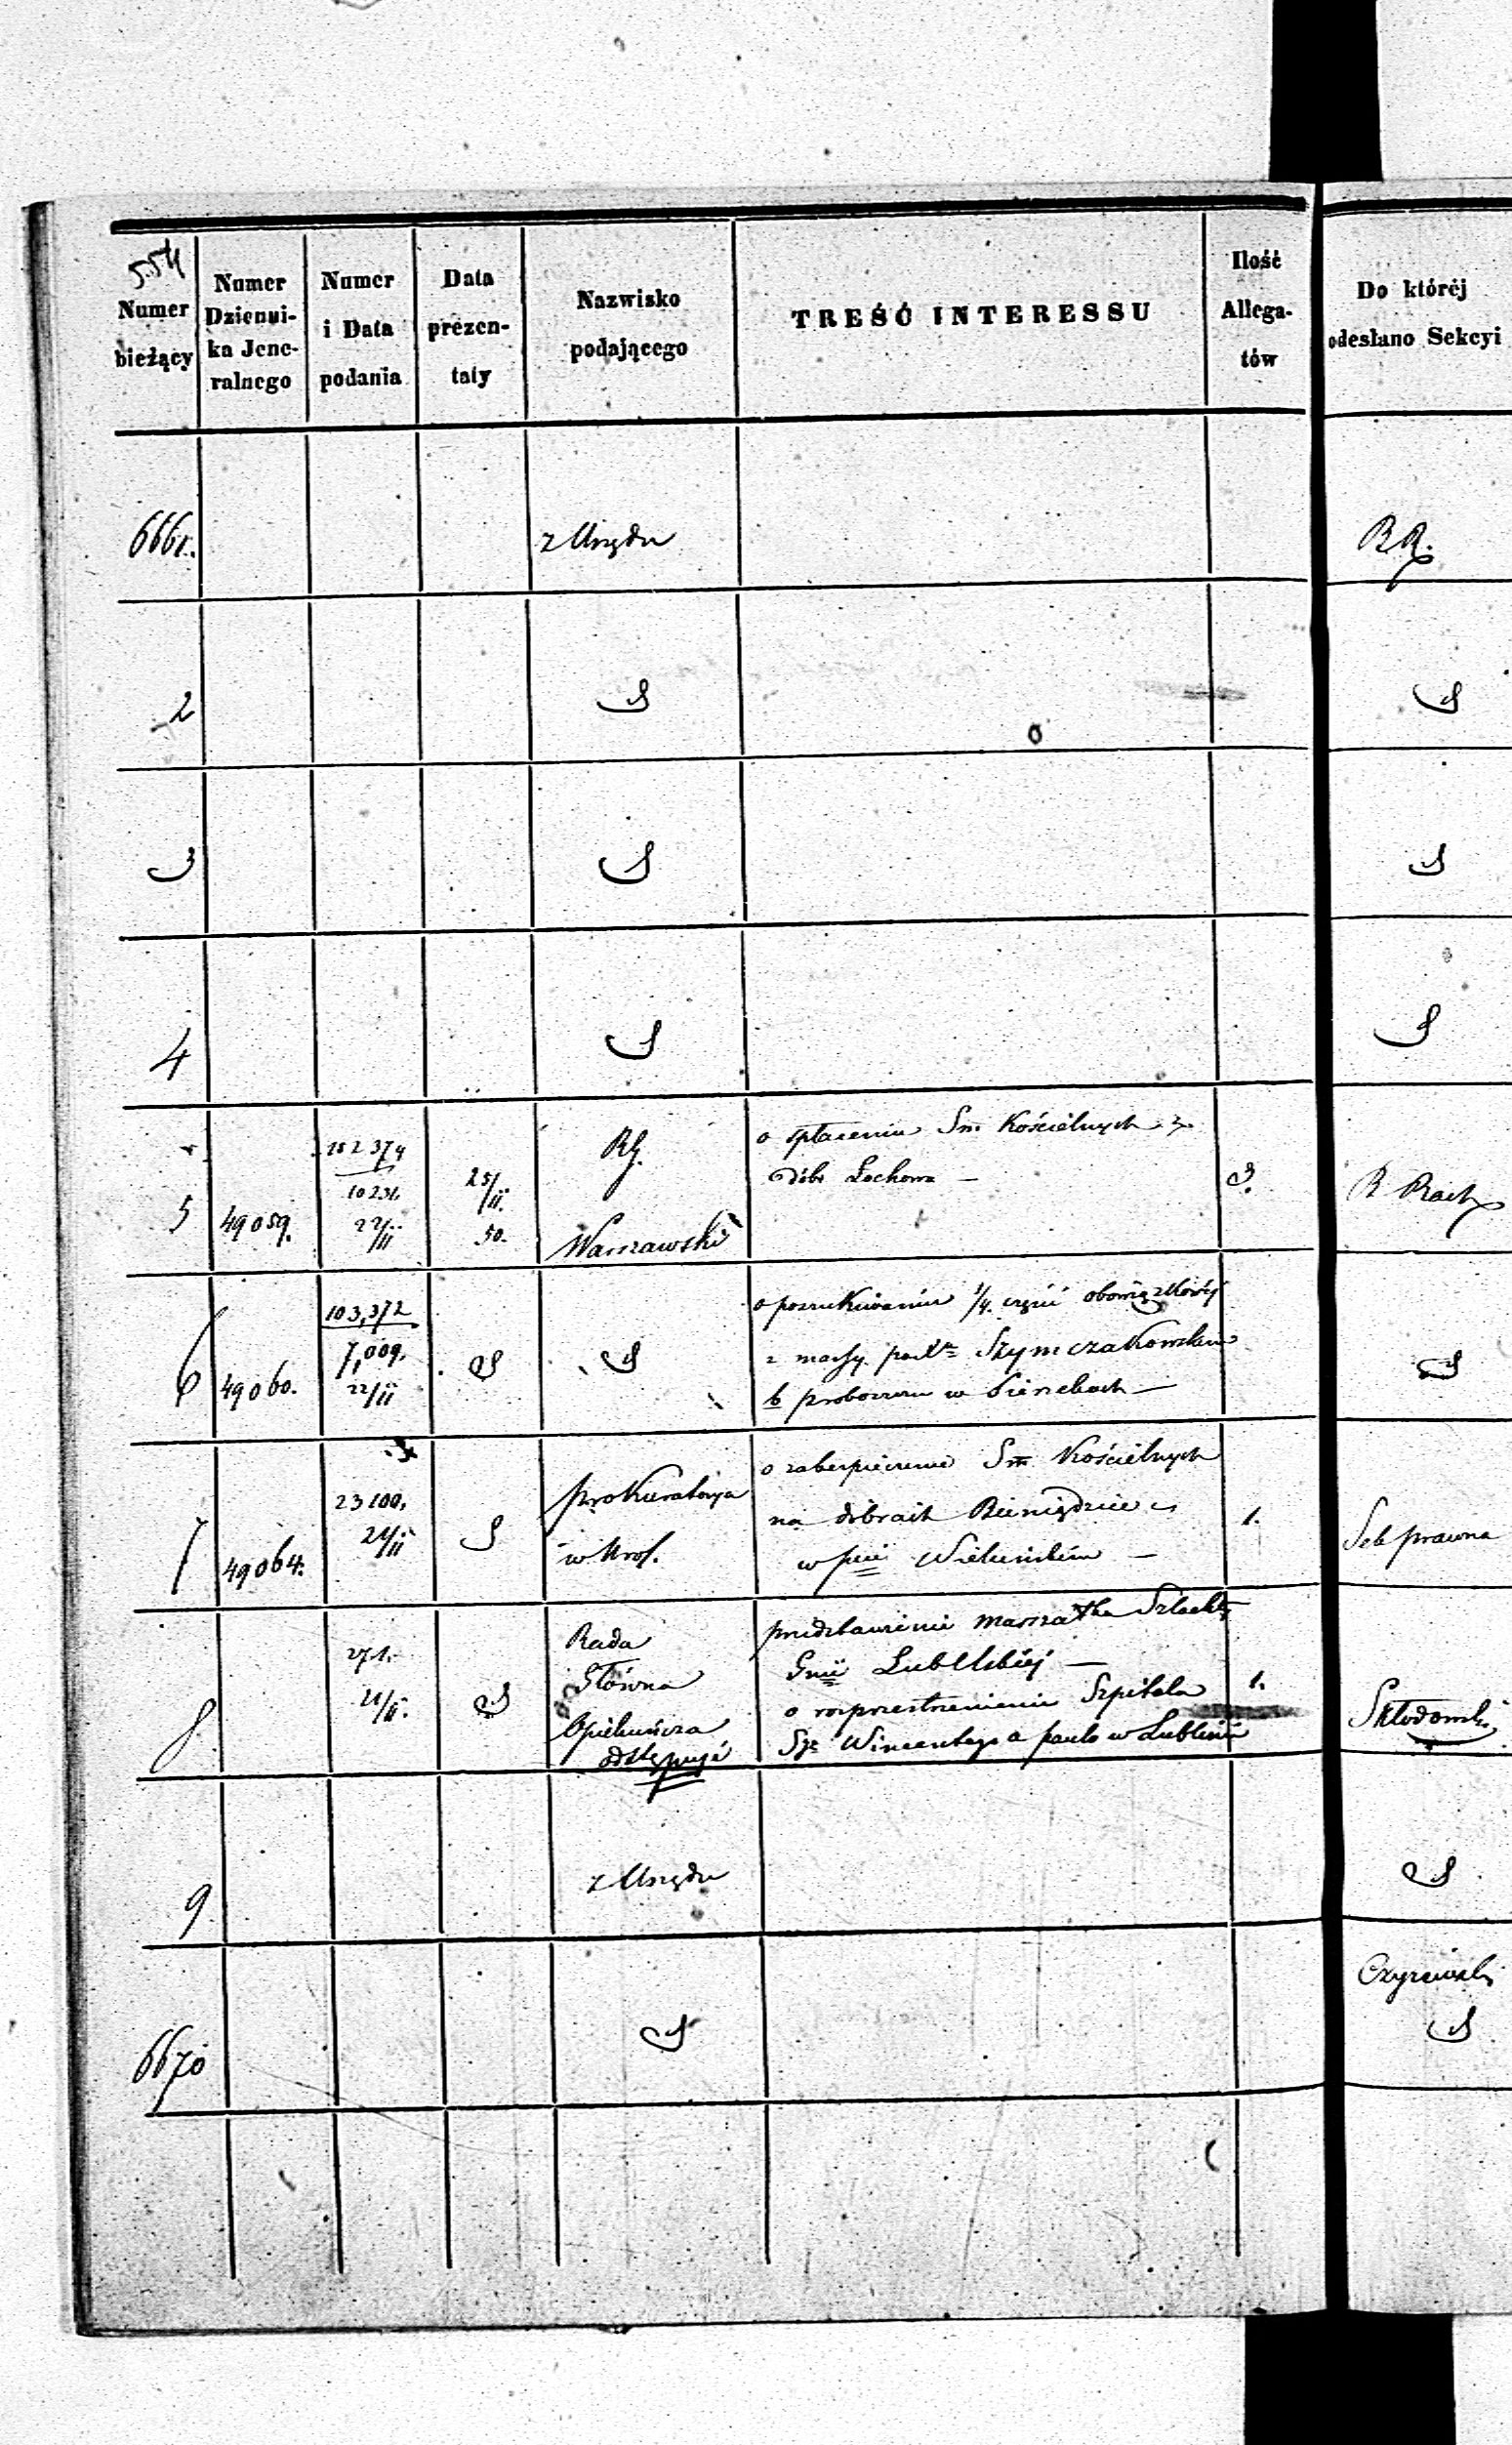 554
Numer bieżący
Numer Dziennika Jeneralnego
Numer i Data podania
Data prezentaty
Nazwisko podającego
TREŚĆ INTERESSU
Ilość Allegatów
Do któréj odesłano Sekcyi
6661. z Urzędu
2
3
4
5 49059. 22/11 25/11 50. RG. Warszawski
o spłaceniu Sm Kościelnych z
dóbr Łochowa —
3.
6 49060. 103,372 7,009. 22/11
o poszukiwaniu 1/4 części obowiązkowéj
z massy po Szymczakowskim
b proboszczu w —
7 49064. 23100. 21/11 Prokuratorya w Krol.
o zabezpieczenie Sm Kościelnych
na dobrach Bieniądzice
w pcie Wieluńskim —
1. Sek prawna
8 271. 21/11. Rada Główna Opiekuńcza odstępuje
przedstawienie Marszałka Szlachty
Gnii Lubelskiéj —
o rozprzestrzenieniu Szpitala
Sgo Wincentego a paulo w Lublinie
1. Skłodowski
9 z Urzędu
6670 Czyżewski